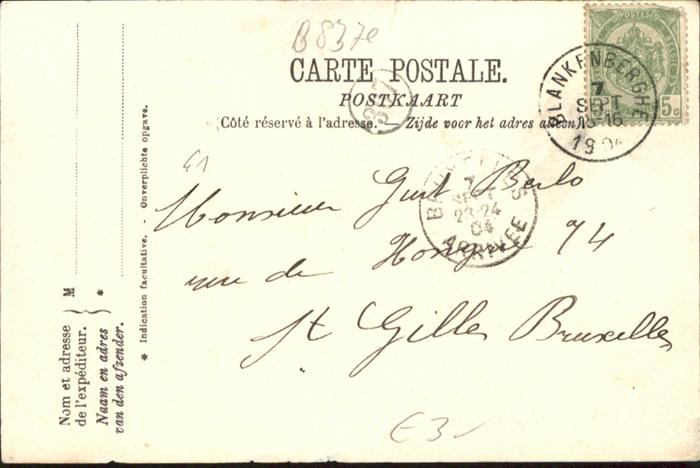 B837e
CARTE POSTALE.
POSTKAART
(Côté réservé à l'adresse. — Zijde voor het adres alleen)
POSTES
5c
BLANKENBERGHE
7
SEPT
15-16
1904
BRUXELLES
7
SEPT
23-24
04
ARRIVÉE
41
Monsieur Gust Berlo
rue de Hongrie 74
St Gilles Bruxelles
E3
* Indication facultative. - Onverplichte opgave.
M
*
Nom et adresse
de l'expéditeur.
Naam en adres
van den afzender.